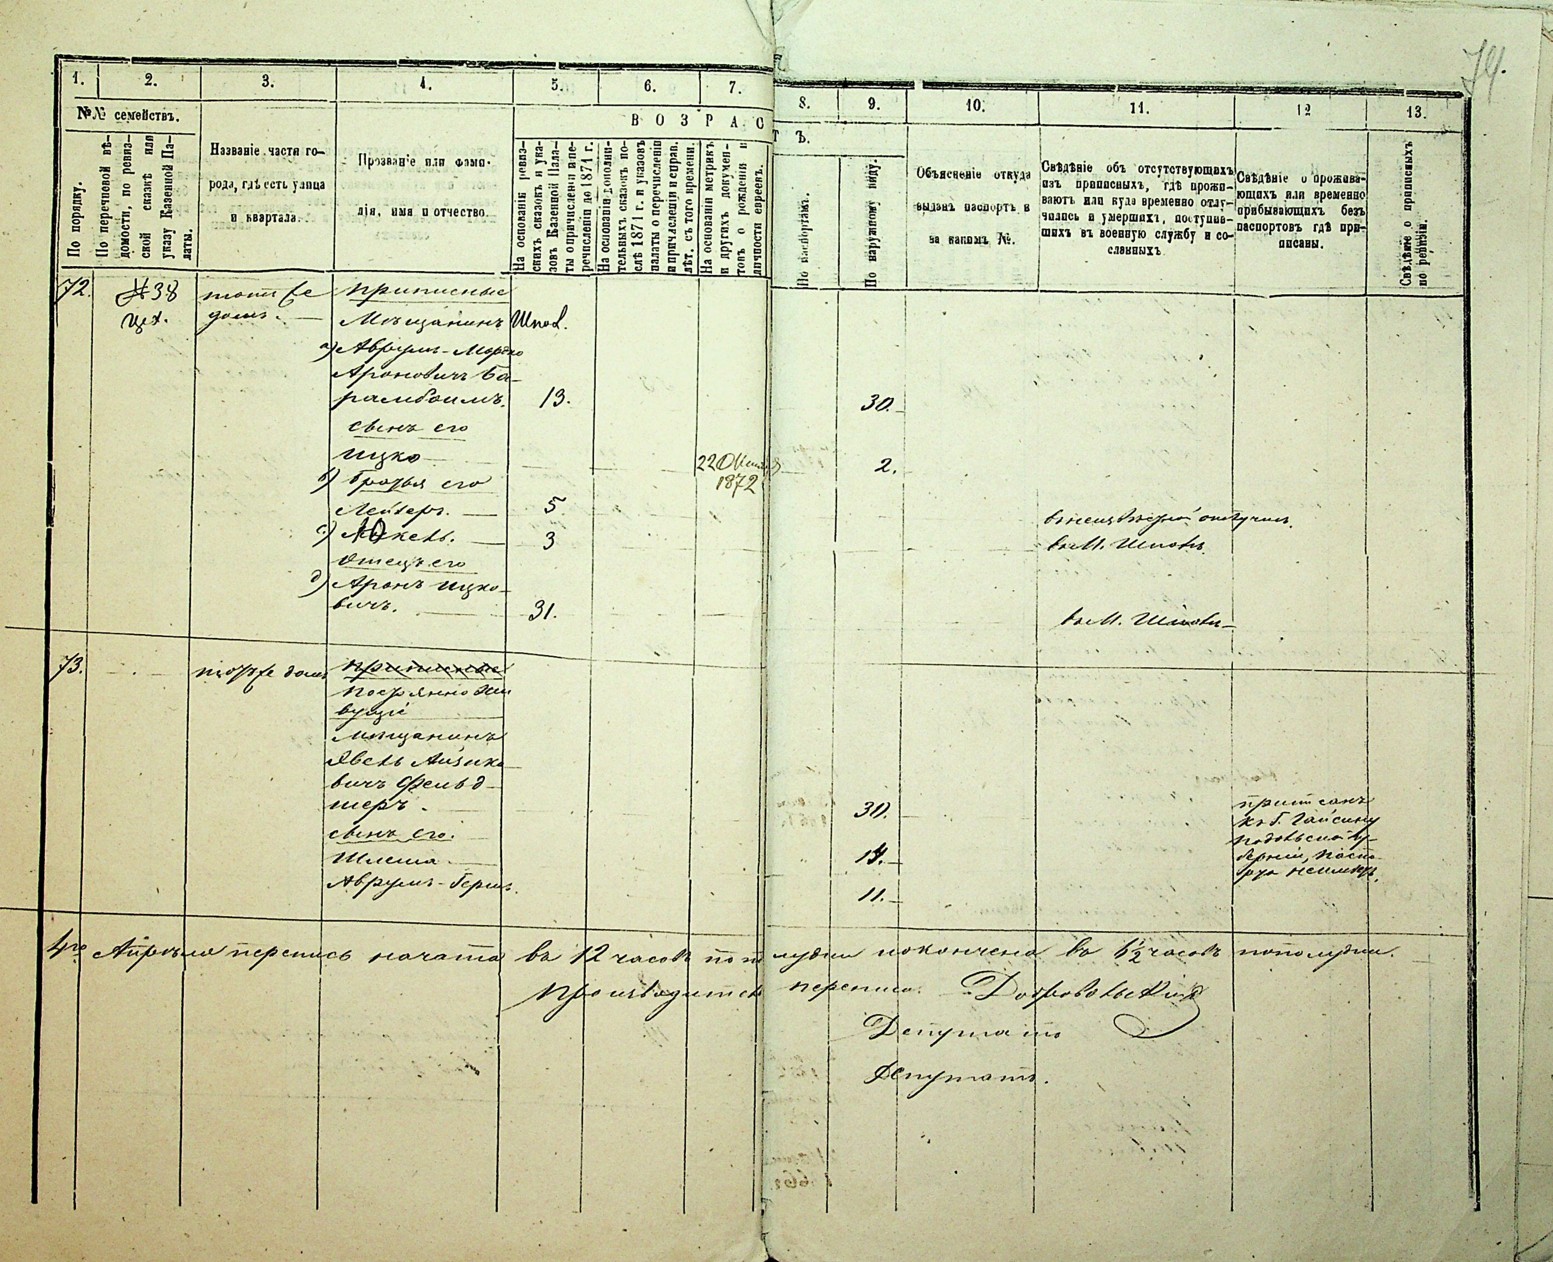 74.
1.
2.
3.
4.
5.
6.
7.
8.
9.
10.
11.
12
13.
№№ семействъ.
По порядку.
По перечневой вѣ-
домости, по ревиз-
ской сказкѣ или
указу Казенной Па-
латы.
Названіе части го-
рода, гдѣ есть улица
и квартала.
Прозваніе или фами-
лія, имя и отчество
ВОЗРАСТЪ.
На основаніи ревиз-
скихъ сказокъ и ука-
зовъ Казенной Пала-
ты о причисленіи и пе-
речисленіи до 1871 г.
На основаніи дополни-
тельныхъ сказокъ по-
слѣ 1871 г. и указовъ
палаты о перечисленіи
и причисленіи и справ.
лѣт. съ того времени.
На основаніи метрикъ
и другихъ докумен-
товъ о рожденіи и
личности евреевъ.
По паспортамъ.
По наружному виду.
Объясненіе откуда
выданъ паспортъ и
за какимъ №.
Свѣдѣніе объ отсутствующихъ
изъ приписныхъ, гдѣ прожи-
ваютъ или куда временно отлу-
чились и умершихъ, поступив-
шихъ въ военную службу и со-
сланныхъ
Свѣдѣніе о прожива-
ющихъ или временно
прибывающихъ безъ
паспортовъ гдѣ при-
писаны.
Свѣдѣніе о приписныхъ
по ревизіи.
72. 38 томъ же приписные
цех. домѣ. Мѣщанинъ Шпол.
а) Аврумъ-Мордко
Ароновичъ Ба-
рамбоимъ. 13. 30.
сынъ его
Ицко 22 1872 2.
б) Братья его
Лейзеръ. 5.
с) 3 въ М. Шполѣ
Отецъ его
д) Аронъ Ицко-
вичъ. 31. въ М. Шполѣ
73. домѣ приписные
постоянно жи
вущіе
мѣщанинъ
Айзико
вичъ Фельд-
шеръ. 30. приписанъ
къ г. Гайсину
сынъ его. Подольской гу-
Шлема 14. берніи, паспо-
Аврумъ-Герш. 11.
4го Апрѣля перепись начата въ 12 часовъ пополудни и окончена въ 6½ часовъ пополудни.
перепись.
Депутатъ
Депутатъ.